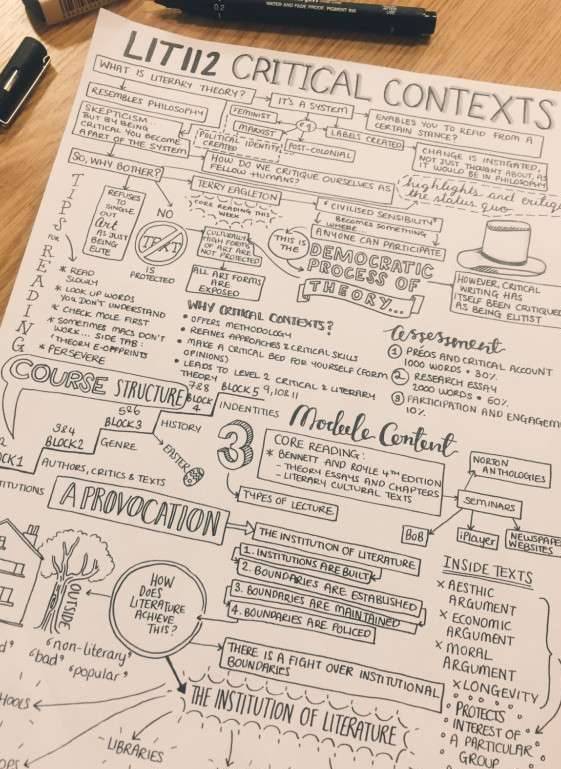 0.2
WATER AND FADE PROOF, PIGMENT INK
LIT112 CRITICAL CONTEXTS
WHAT IS LITERARY THEORY?
IT'S A SYSTEM
ENABLES YOU TO READ FROM A
CERTAIN STANCE?
RESEMBLES PHILOSOPHY
SKEPTICISM
BUT BY BEING
CRITICAL YOU BECOME
A PART OF THE SYSTEM
FEMINIST
MARXIST
POST-COLONIAL
e.g
LABELS CREATED
POLITICAL IDENTITY
CREATED
CHANGE IS INSTIGATED,
NOT JUST THOUGHT ABOUT, AS
IT WOULD BE IN PHILOSOPHY
highlights and critiq
the status quo
SO, WHY BOTHER?
HOW DO WE CRITIQUE OURSELVES AS
FELLOW HUMANS?
TERRY EAGLETON
CORE READING THIS
WEEK
"CIVILISED SENSIBILITY"
WHERE...
BECOMES SOMETHING
ANYONE CAN PARTICIPATE
REFUSES TO
SINGLE OUT
Art
AS JUST
BEING
ELITE
NO
TEXT
IS
PROTECTED
CULTURALLY
HIGH FORMS
OF ART ARE
NOT PROTECTED
ALL ART FORMS
ARE
EXPOSED
THIS IS
THE
DEMOCRATIC
PROCESS OF
THEORY...
HOWEVER, CRITICAL
WRITING HAS
ITSELF BEEN CRITIQUED
AS BEING ELITIST
TIPS FOR READING
* READ
SLOWLY
* LOOK UP WORDS
YOU DON'T UNDERSTAND
* CHECK MOLE FIRST
* SOMETIMES MACS DON'T
WORK... SIDE TAB:
THEORY E-OFFPRINTS
* PERSEVERE
WHY CRITICAL CONTEXTS?
• OFFERS METHODOLOGY
• REFINES APPROACHES & CRITICAL SKILLS
• MAKE A CRITICAL BED FOR YOURSELF (FORM
OPINIONS)
• LEADS TO LEVEL 2 CRITICAL & LITERARY
THEORY
assessment
1 PRÉCIS AND CRITICAL ACCOUNT
1000 WORDS • 30%
2 RESEARCH ESSAY
2000 WORDS • 60%
3 PARTICIPATION AND ENGAGEM
10%
COURSE STRUCTURE
CK1
3&4
BLOCK2
5&6
BLOCK3
7&8
BLOCK
4
BLOCK5 9,10&11
INDENTITIES
HISTORY
GENRE
AUTHORS, CRITICS & TEXTS
TITUTIONS
EASTER
Module Content
3
CORE READING:
* BENNETT AND ROYLE 4TH EDITION
- THEORY ESSAYS AND CHAPTERS
- LITERARY CULTURAL TEXTS
TYPES OF LECTURE
NORTON
ANTHOLOGIES
SEMINARS
BoB
iPlayer
NEWSPAPE
WEBSITES
A PROVOCATION
THE INSTITUTION OF LITERATURE
1. INSTITUTIONS ARE BUILT
2. BOUNDARIES ARE ESTABLISHED
3. BOUNDARIES ARE MAINTAINED
4. BOUNDARIES ARE POLICED
HOW
DOES
LITERATURE
ACHIEVE
THIS?
OUTSIDE
"non-literary"
"bad" "popular"
THERE IS A FIGHT OVER INSTITUTIONAL
BOUNDARIES
THE INSTITUTION OF LITERATURE
HOOLS
LIBRARIES
OPS
INSIDE TEXTS
x AESTHIC
ARGUMENT
x ECONOMIC
ARGUMENT
x MORAL
ARGUMENT
x LONGEVITY
PROTECTS
INTEREST OF
A PARTICULAR
GROUP